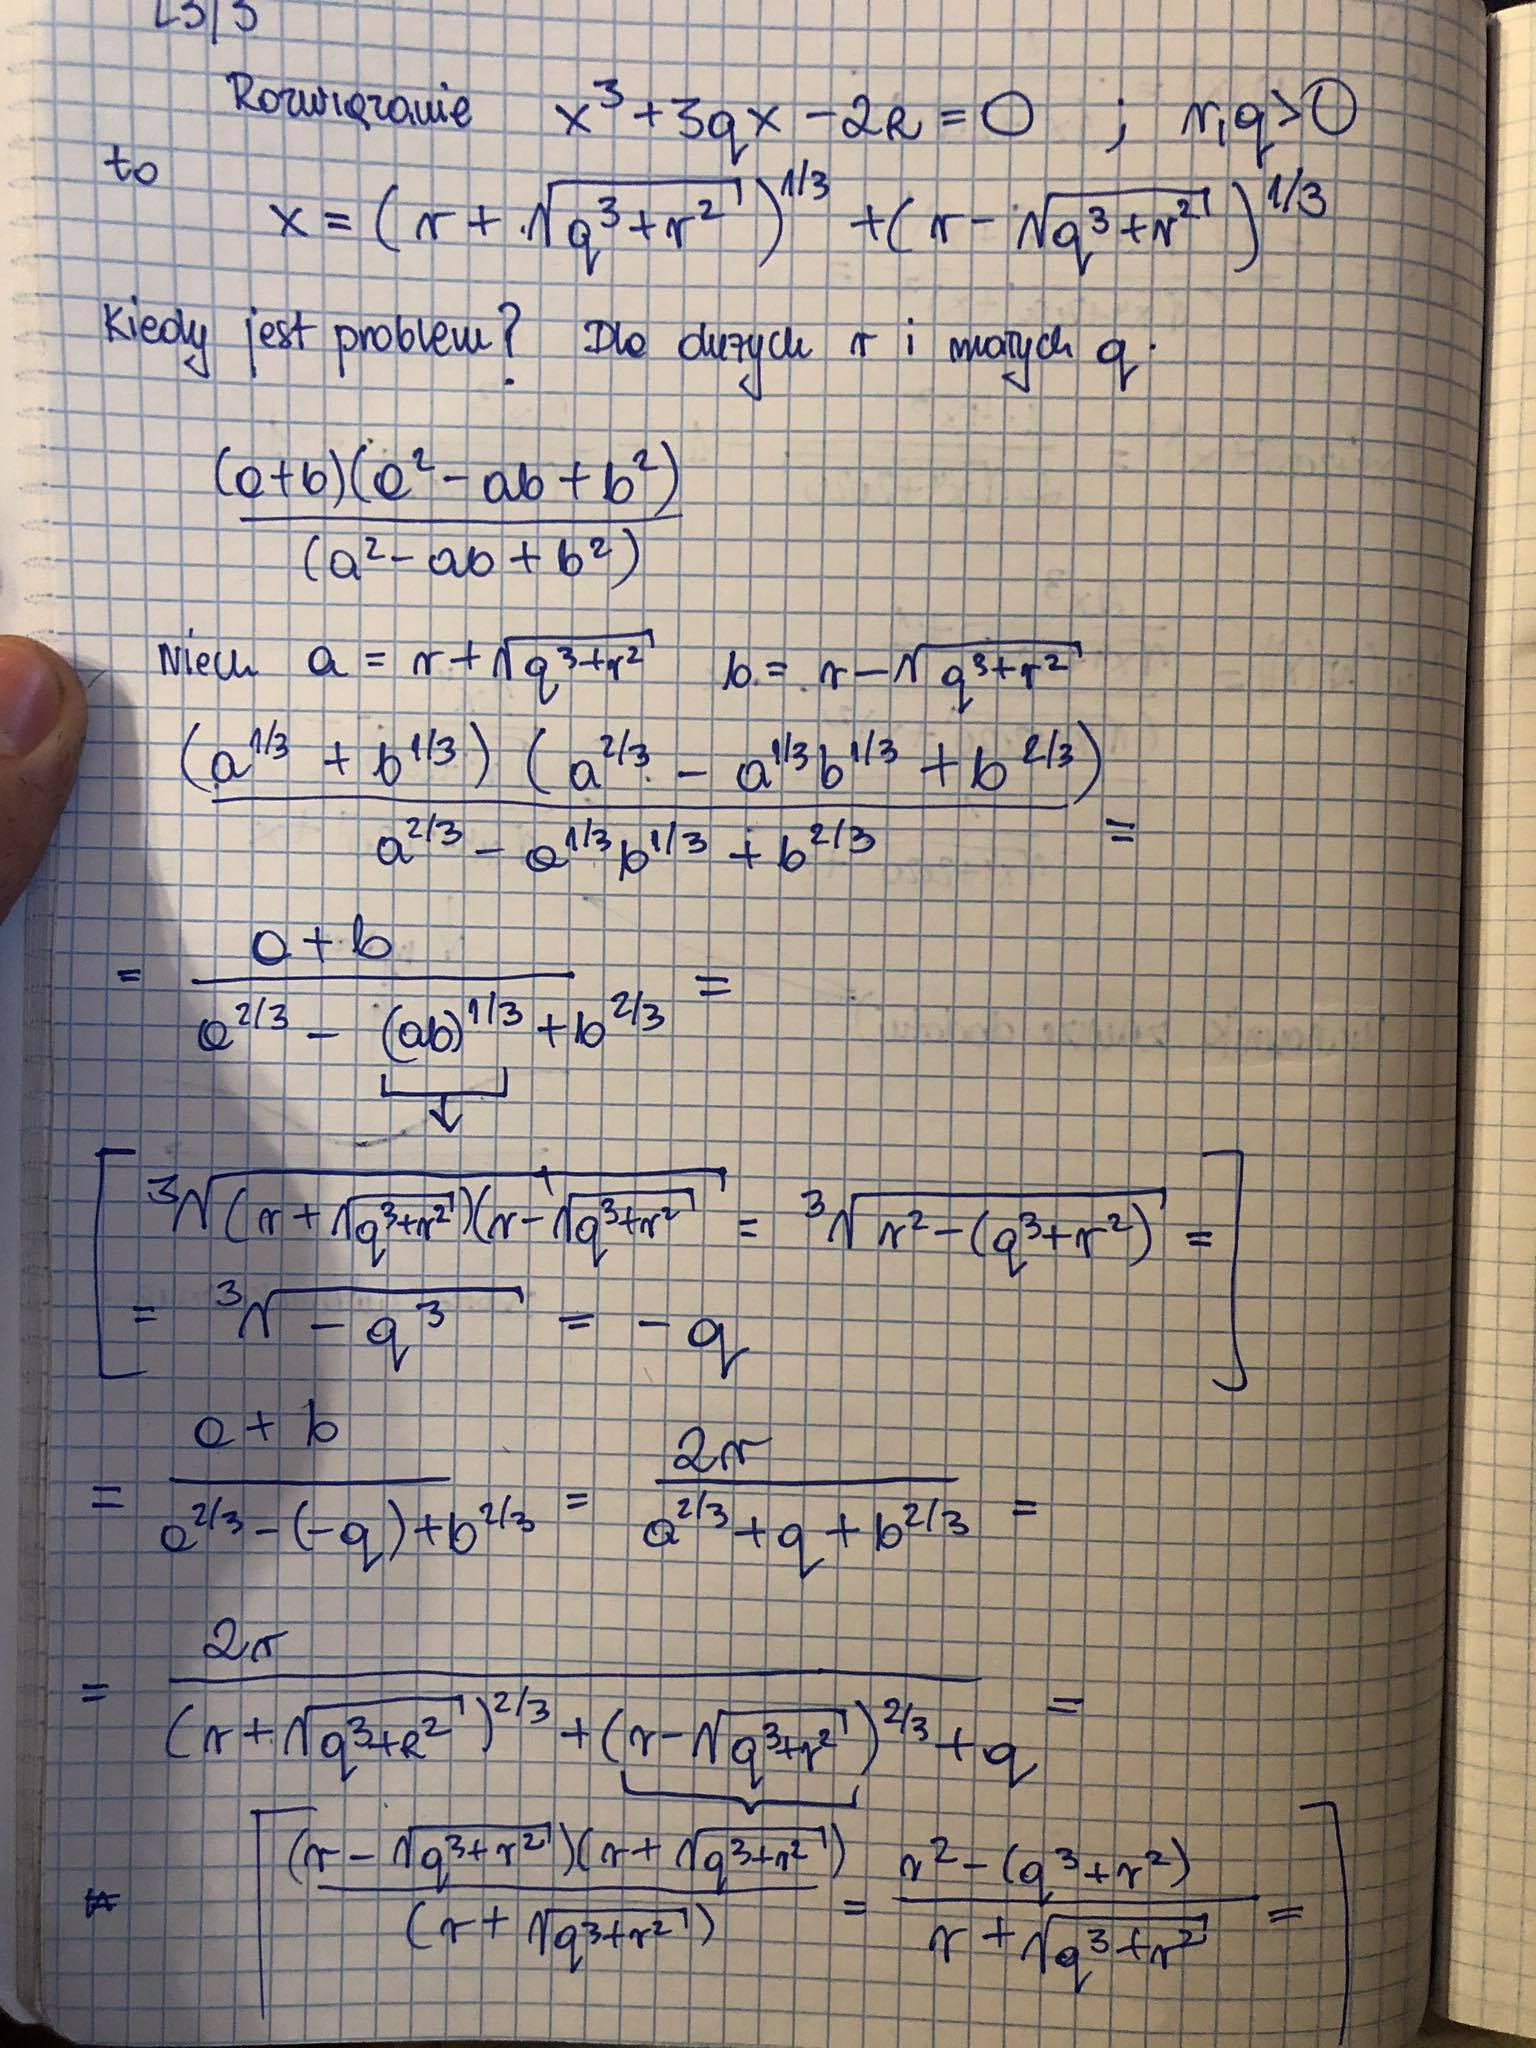 L3/3
Rozwiązanie x³ + 3qx - 2r = 0 ; r, q > 0
to
x = (r + √(q³+r²))^1/3 + (r - √(q³+r²))^1/3
Kiedy jest problem? Dla dużych r i małych q.
(a+b)(a² - ab + b²)
(a² - ab + b²)
Niech a = r + √(q³+r²) b = r - √(q³+r²)
(a^1/3 + b^1/3) (a^2/3 - a^1/3 b^1/3 + b^2/3)
a^2/3 - a^1/3 b^1/3 + b^2/3 =
= a + b
a^2/3 - (ab)^1/3 + b^2/3 =
[ ³√((r + √(q³+r²))(r - √(q³+r²)) = ³√(r² - (q³+r²)) =
= ³√(-q³) = -q ]
= a + b / a^2/3 - (-q) + b^2/3 = 2r / a^2/3 + q + b^2/3 =
= 2r
(r + √(q³+r²))^2/3 + (r - √(q³+r²))^2/3 + q =
[ (r - √(q³+r²))(r + √(q³+r²)) / (r + √(q³+r²)) = r² - (q³+r²) / r + √(q³+r²) = ]